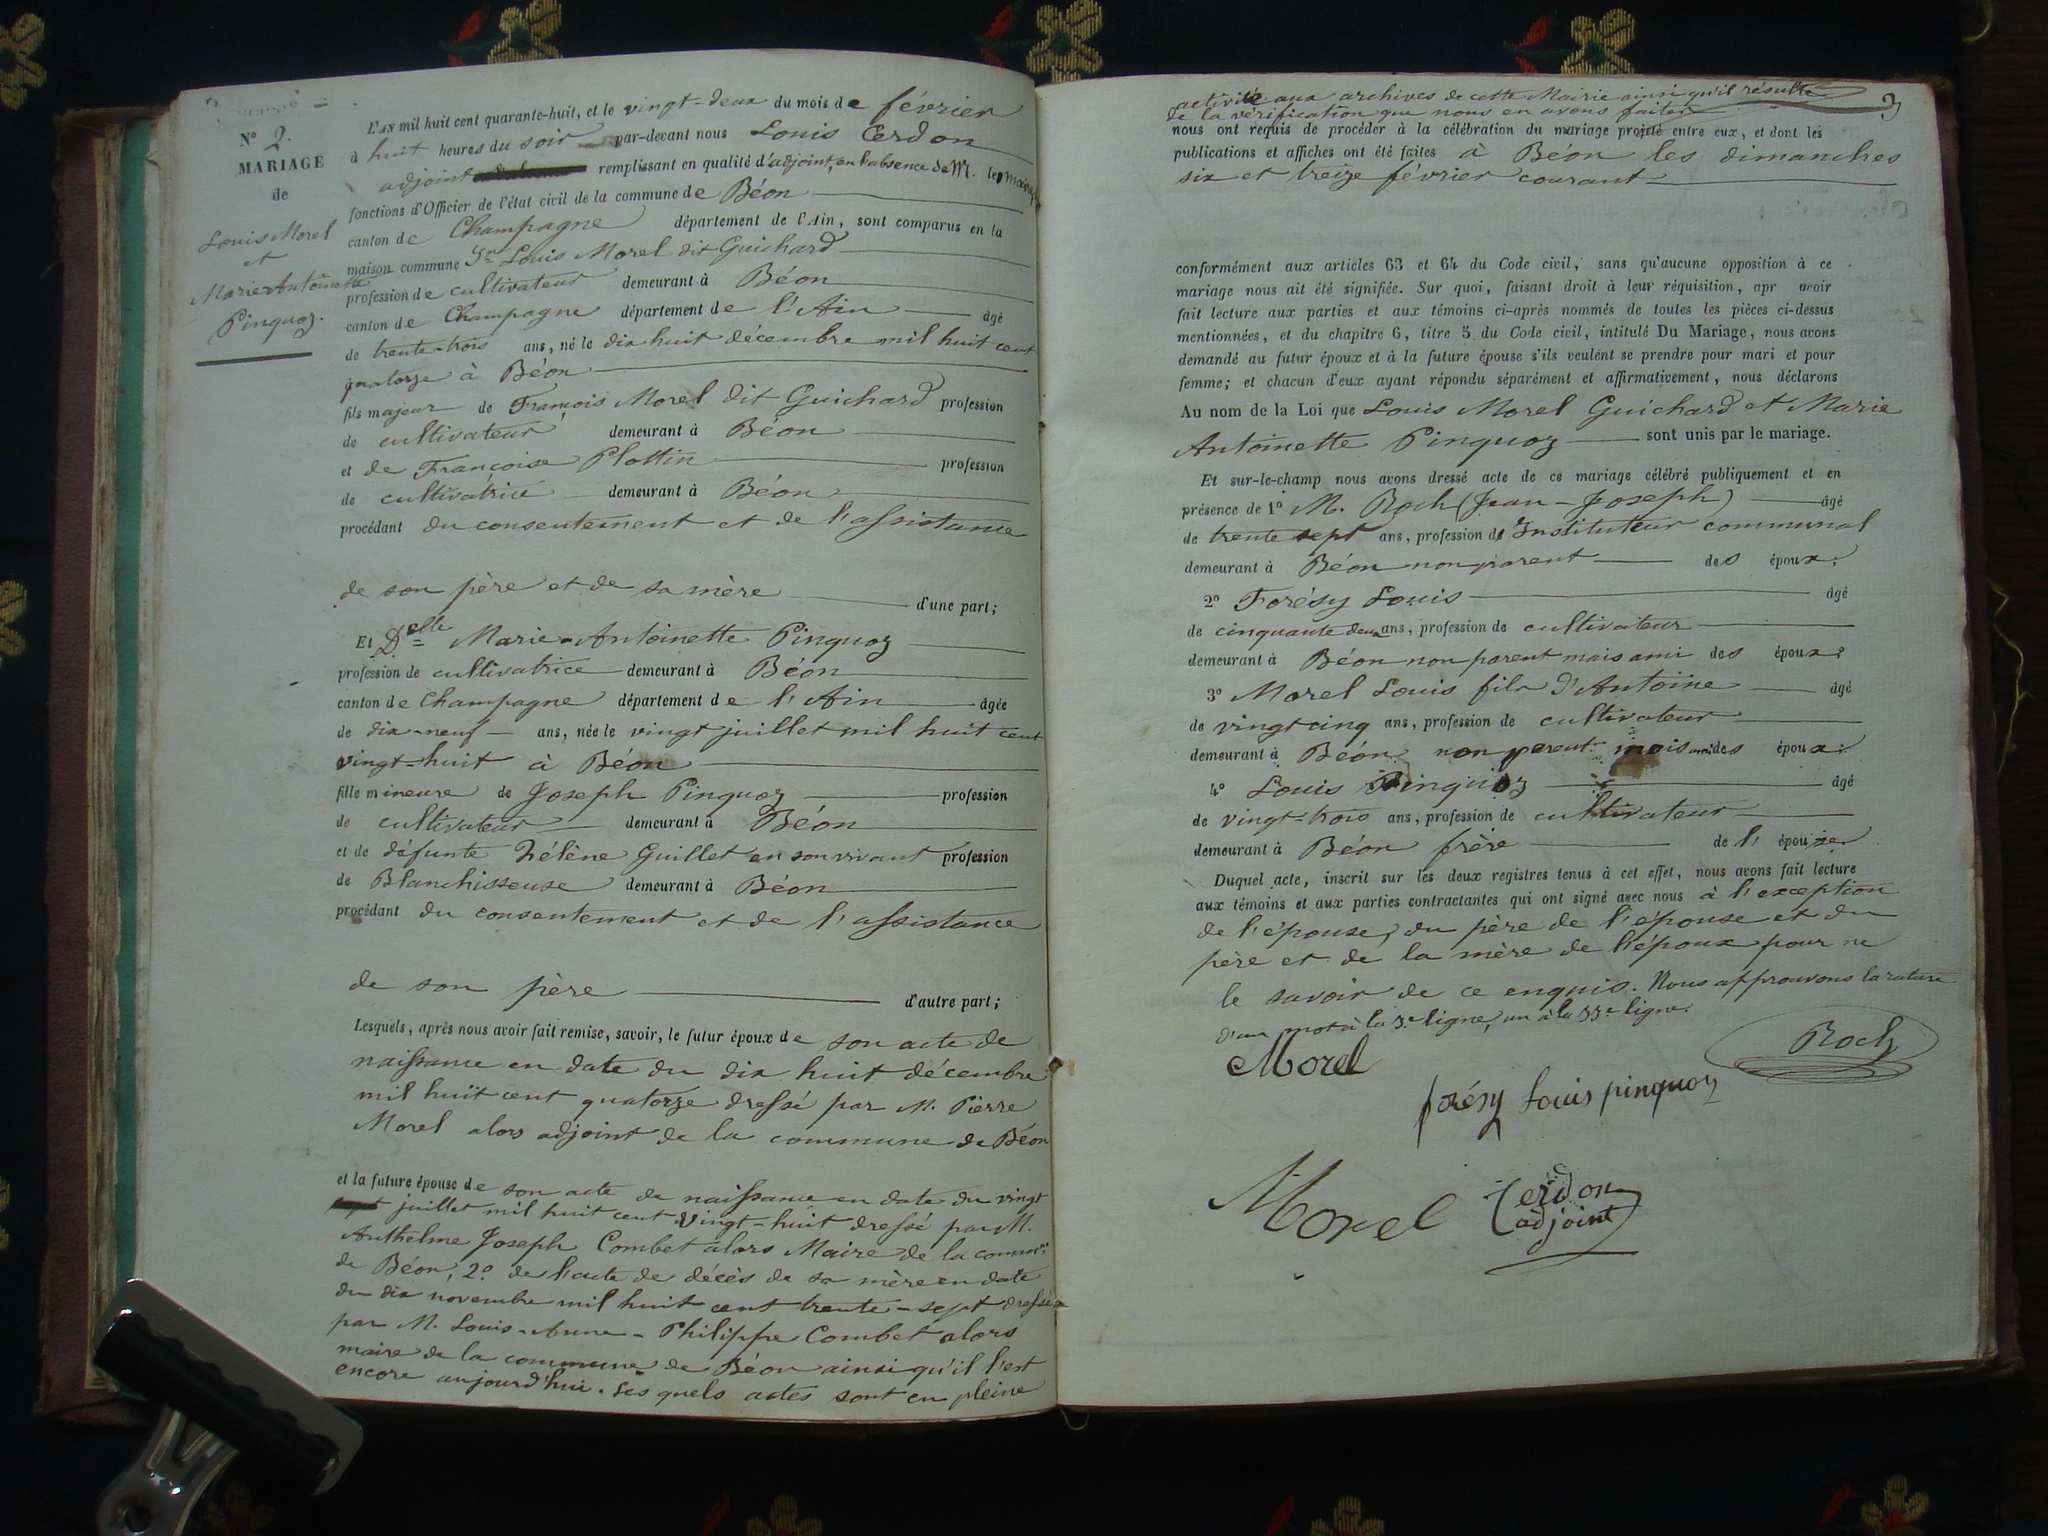 N.º 2.
MARIAGE
de
Louis Morel
et
Marie-Antoinette
Pinquoz.
L'AN mil huit cent quarante-huit, et le vingt-deux du mois de février
à huit heures du soir par-devant nous Louis Cerdon
adjoint remplissant en qualité d'adjoint, en l'absence de M. le maire,
fonctions d'Officier de l'état civil de la commune de Béon
canton de Champagne département de l'Ain, sont comparus en la
maison commune Sr. Louis Morel dit Guichard
profession de cultivateur demeurant à Béon
canton de Champagne département de l'Ain âgé
de trente-trois ans, né le dix huit décembre mil huit cent
quatorze à Béon
fils majeur de François Morel dit Guichard profession
de cultivateur demeurant à Béon
et de Françoise Plottin profession
de cultivatrice demeurant à Béon
procédant du consentement et de l'assistance
de son père et de sa mère d'une part;
Et Delle Marie-Antoinette Pinquoz
profession de cultivatrice demeurant à Béon
canton de Champagne département de l'Ain âgée
de dix-neuf ans, née le vingt juillet mil huit cent
vingt-huit à Béon
fille mineure de Joseph Pinquoz profession
de cultivateur demeurant à Béon
et de défunte Hélène Guillet en son vivant profession
de Blanchisseuse demeurant à Béon
procédant du consentement et de l'assistance
de son père d'autre part;
Lesquels, après nous avoir fait remise, savoir, le futur époux de son acte de
naissance en date du dix huit décembre
mil huit cent quatorze dressé par M. Pierre
Morel alors adjoint de la commune de Béon
et la future épouse de son acte de naissance en date du vingt
juillet mil huit cent vingt-huit dressé par M.
Anthelme Joseph Combet alors Maire de la comm.ne
de Béon, 2.º de l'acte de décès de sa mère en date
du dix novembre mil huit cent trente-sept dressé
par M. Louis-Aune-Philippe Combet alors
maire de la commune de Béon ainsi qu'il l'est
encore aujourd'hui. Les quels actes sont en pleine
activité aux archives de cette Mairie ainsi qu'il résulte
de la vérification que nous en avons faite
3
nous ont requis de procéder à la célébration du mariage projeté entre eux, et dont les
publications et affiches ont été faites à Béon les dimanches
six et treize février courant
conformément aux articles 63 et 64 du Code civil, sans qu'aucune opposition à ce
mariage nous ait été signifiée. Sur quoi, faisant droit à leur réquisition, apr avoir
fait lecture aux parties et aux témoins ci-après nommés de toutes les pièces ci-dessus
mentionnées, et du chapitre 6, titre 5 du Code civil, intitulé Du Mariage, nous avons
demandé au futur époux et à la future épouse s'ils veulent se prendre pour mari et pour
femme; et chacun d'eux ayant répondu séparément et affirmativement, nous déclarons
Au nom de la Loi que Louis Morel Guichard et Marie
Antoinette Pinquoz sont unis par le mariage.
Et sur-le-champ nous avons dressé acte de ce mariage célébré publiquement et en
présence de 1º M. Roch (Jean-Joseph) âgé
de trente sept ans, profession de Instituteur communal
demeurant à Béon non parent des époux;
2º Forésy Louis âgé
de cinquante deux ans, profession de cultivateur
demeurant à Béon non parent mais ami des époux;
3º Morel Louis fils d'Antoine âgé
de vingt cinq ans, profession de cultivateur
demeurant à Béon non parent mais ami des époux;
4º Louis Pinquoz âgé
de vingt-trois ans, profession de cultivateur
demeurant à Béon frère de l'épouse.
Duquel acte, inscrit sur les deux registres tenus à cet effet, nous avons fait lecture
aux témoins et aux parties contractantes qui ont signé avec nous à l'exception
de l'épouse, du père de l'épouse et du
père et de la mère de l'époux pour ne
le savoir de ce enquis. Nous approuvons la rature
d'un mot à la 3e ligne, un à la 33e ligne.
Morel
Roch
forésy Louis pinquoz
Morel
Cerdon
adjoint